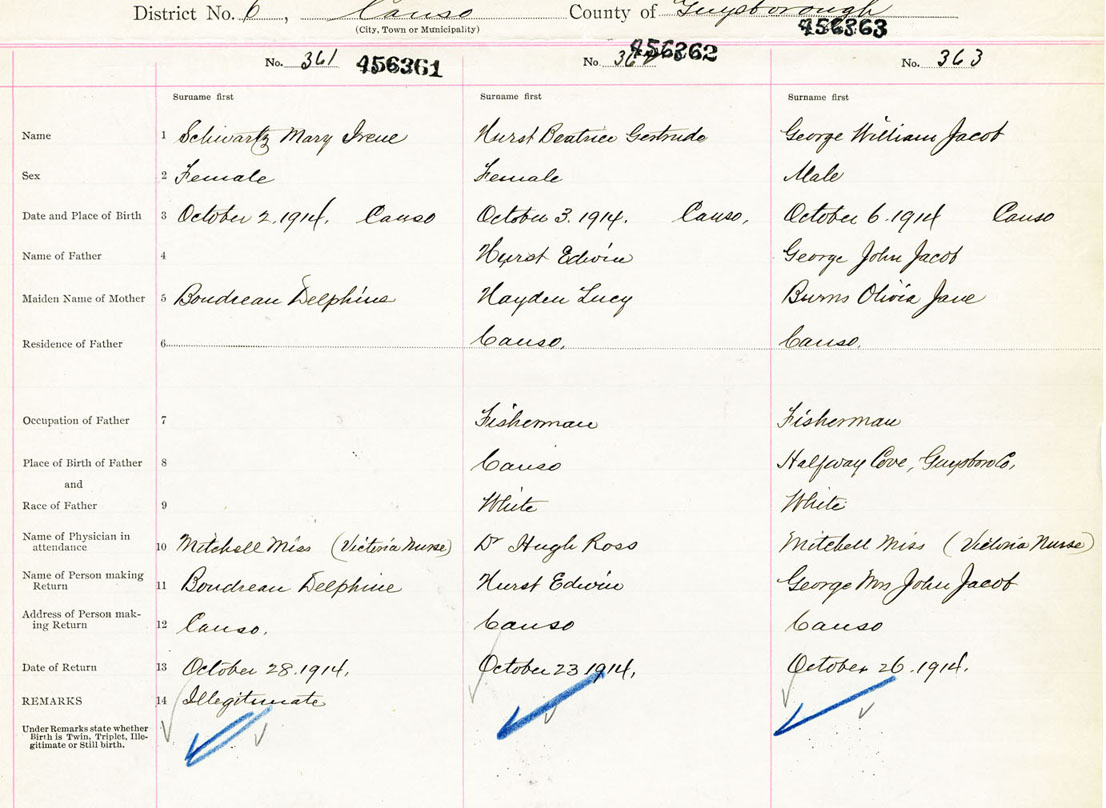 District No. 6, Canso County of Guysborough
(City, Town or Municipality)
456363
No. 361 456361 No. 362 456362 No. 363
Surname first Surname first Surname first
Name 1 Schwartz Mary Irene Hurst Beatrice Gertrude George William Jacob
Sex 2 Female Female Male
Date and Place of Birth 3 October 2. 1914. Canso October 3. 1914. Canso, October 6. 1914 Canso
Name of Father 4 Hurst Edwin George John Jacob
Maiden Name of Mother 5 Boudreau Delphine Hayden Lucy Burns Olivia Jane
Residence of Father 6 Canso. Canso.
Occupation of Father 7 Fisherman Fisherman
Place of Birth of Father 8 Canso Halfway Cove, Guysboro Co,
and
Race of Father 9 White White
Name of Physician in
attendance 10 Mitchell Miss (Victoria Nurse) Dr Hugh Ross Mitchell Miss (Victoria Nurse)
Name of Person making
Return 11 Boudreau Delphine Hurst Edwin George Mrs John Jacob
Address of Person mak-
ing Return 12 Canso. Canso Canso
Date of Return 13 October 28. 1914. October 23 1914. October 26. 1914.
REMARKS 14 Illegitimate
Under Remarks state whether
Birth is Twin, Triplet, Ille-
gitimate or Still birth.